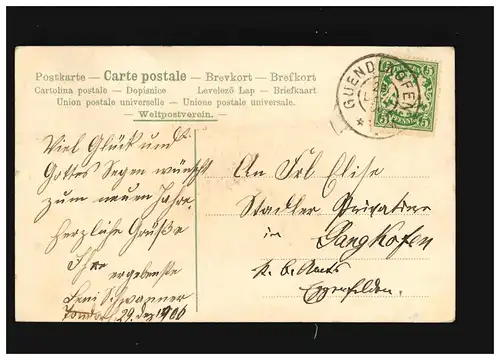 Postkarte — Carte postale — Brevkort — Brefkort
Cartolina postale — Dopisnice Levelező Lap — Briefkaart
Union postale universelle — Unione postale universale.
— Weltpostverein. —
GUENDLKOFEN
5 5
5 PFENNIG 5
Viel Glück und
Gottes Segen wünscht
zum neuen Jahre.
Herzliche Grüße
Ihre
ergebenste
Leni Schwanner
29. Dez. 1906
An Frl Elise
Stadler Privatiere
in
Panghofen
k. b. Amts
Eggenfelden.